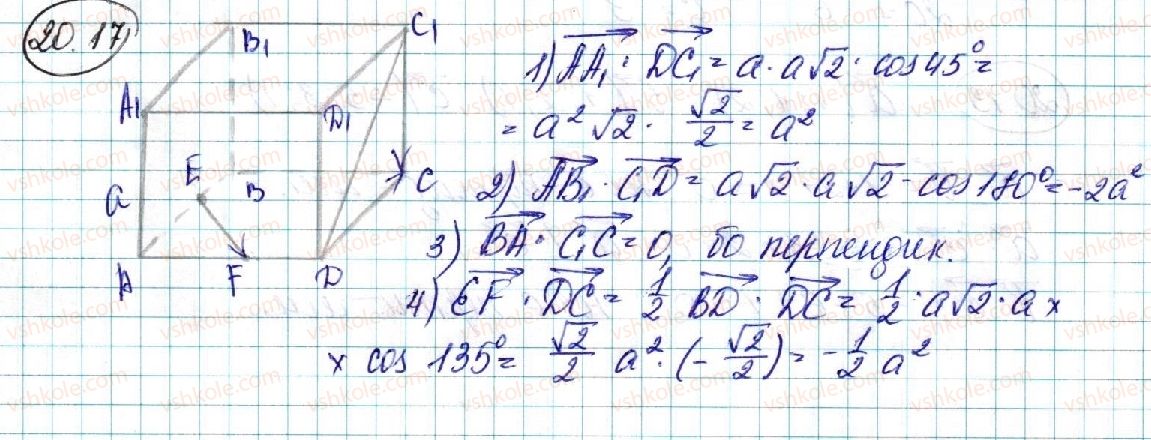 20.17
B₁ C₁
A₁ D₁
E B C
a
A F D
1) AA₁ · DC₁ = a · a√2 · cos 45° =
= a²√2 · √2/2 = a²
2) AB₁ · C₁D = a√2 · a√2 · cos 180° = -2a²
3) BA · C₁C = 0, бо перпендик.
4) EF · DC = 1/2 BD · DC = 1/2 · a√2 · a ×
× cos 135° = √2/2 a² · (-√2/2) = -1/2 a²
vshkole.com